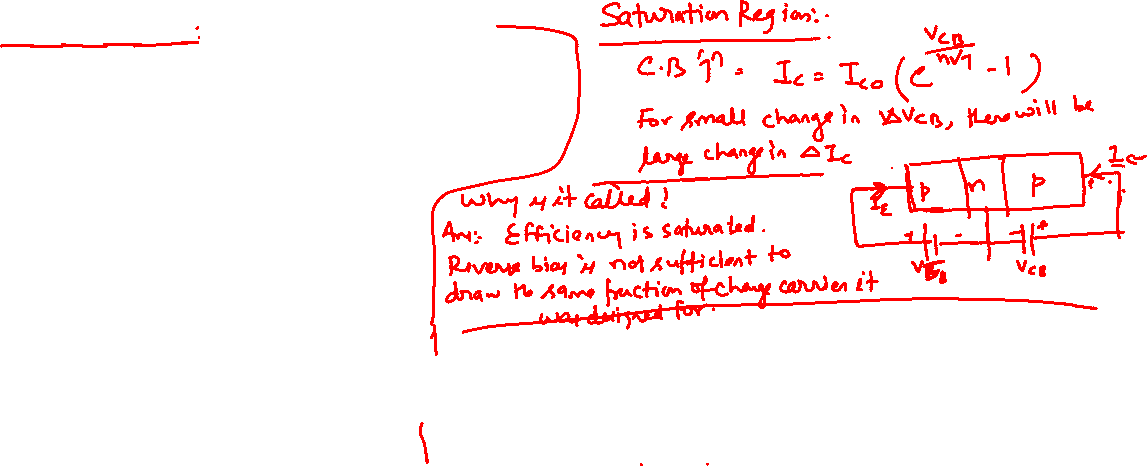 Saturation Region:-
C.B Jn = Ic = Ico (e^(VCB/ηVT) - 1)
For small change in ΔVCB, there will be
large change in ΔIc
IE p n p Ic
+ - - +
VEB VCB
Why is it called?
Ans:- Efficiency is saturated.
Reverse bias is not sufficient to
draw the same fraction of charge carrier it
was designed for.